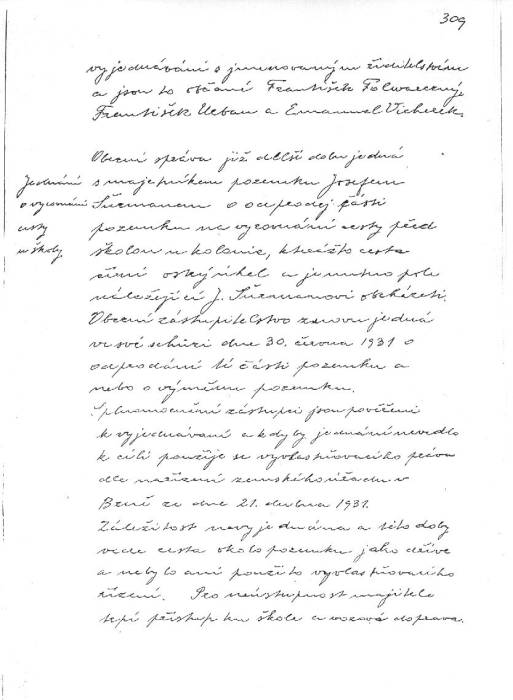 309
vyjednávání s jmenovaným ředitelstvím
a jsou to občané František Folwarczný,
František Urban a Emanuel Vicherek.
Jednání
o vyrovnání
cesty
u školy.
Obecní správa již delší dobu jedná
s majetníkem pozemku Josefem
Sužmanem o odprodej části
pozemku na vyrovnání cesty před
školou u kolonie, kterážto cesta
činí ostrý úhel a je nutno pole
náležející J. Sužmanovi obcházeti.
Obecní zastupitelstvo znovu jedná
ve své schůzi dne 30. června 1931 o
odprodání té části pozemku a
nebo o výměnu pozemku.
Splnomocnění zástupci jsou pověřeni
k vyjednávaní a kdyby jednání nevedlo
k cíli použije se vyvlastňovacího práva
dle nařízení zemského úřadu v
Brně ze dne 21. dubna 1931.
Záležitost nevyjednána a této doby
vede cesta okolo pozemku jako dříve
a nebylo ani použito vyvlastňovacího
řízení. Pro neústupnost majitele
trpí přístup ku škole a vozová doprava.